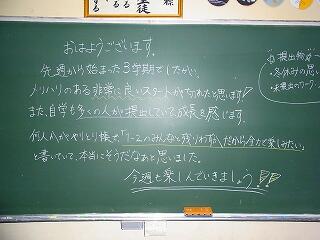 おはようございます。
先週から始まった3学期でしたが、
メリハリのある非常に良いスタートが切れたと思います!
また、自学も多くの人が提出していて、成長を感じます。
何人かがやりとり帳で「1-2のみんなと残りわずかだから全力で楽しみたい」
と書いていて、本当にそうだなぁと思いました。
今週も楽しんでいきましょう!!
提出物
・冬休みの思い
・未提出のワーク